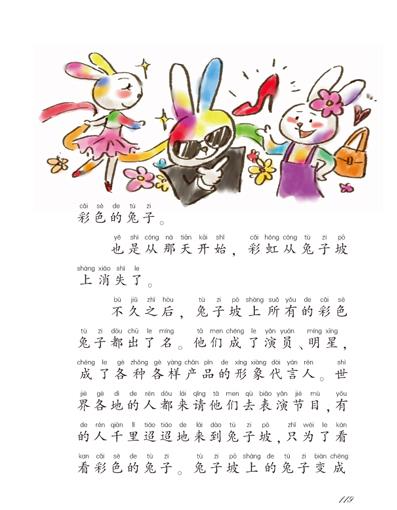 cǎi sè de tù zi
彩色的兔子。
yě shì cóng nà tiān kāi shǐ cǎi hóng cóng tù zi pō
也是从那天开始，彩虹从兔子坡
shàng xiāo shī le
上消失了。
bù jiǔ zhī hòu tù zi pō shàng suǒ yǒu de cǎi sè
不久之后，兔子坡上所有的彩色
tù zi dōu chū le míng tā men chéng le yǎn yuán míng xīng
兔子都出了名。他们成了演员、明星，
chéng le gè zhǒng gè yàng chǎn pǐn de xíng xiàng dài yán rén shì
成了各种各样产品的形象代言人。世
jiè gè dì de rén dōu lái qǐng tā men qù biǎo yǎn jié mù yǒu
界各地的人都来请他们去表演节目，有
de rén qiān lǐ tiáo tiáo de lái dào tù zi pō zhǐ wèi le kàn
的人千里迢迢地来到兔子坡，只为了看
kan cǎi sè de tù zi tù zi pō shàng de tù zi biàn chéng
看彩色的兔子。兔子坡上的兔子变成
119